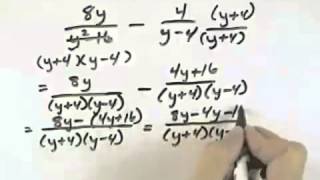 8y/(y²-16) - 4/(y-4) (y+4)/(y+4)
(y+4)(y-4)
= 8y/((y+4)(y-4)) - (4y+16)/((y+4)(y-4))
= (8y-(4y+16))/((y+4)(y-4)) = (8y-4y-1)/((y+4)(y-